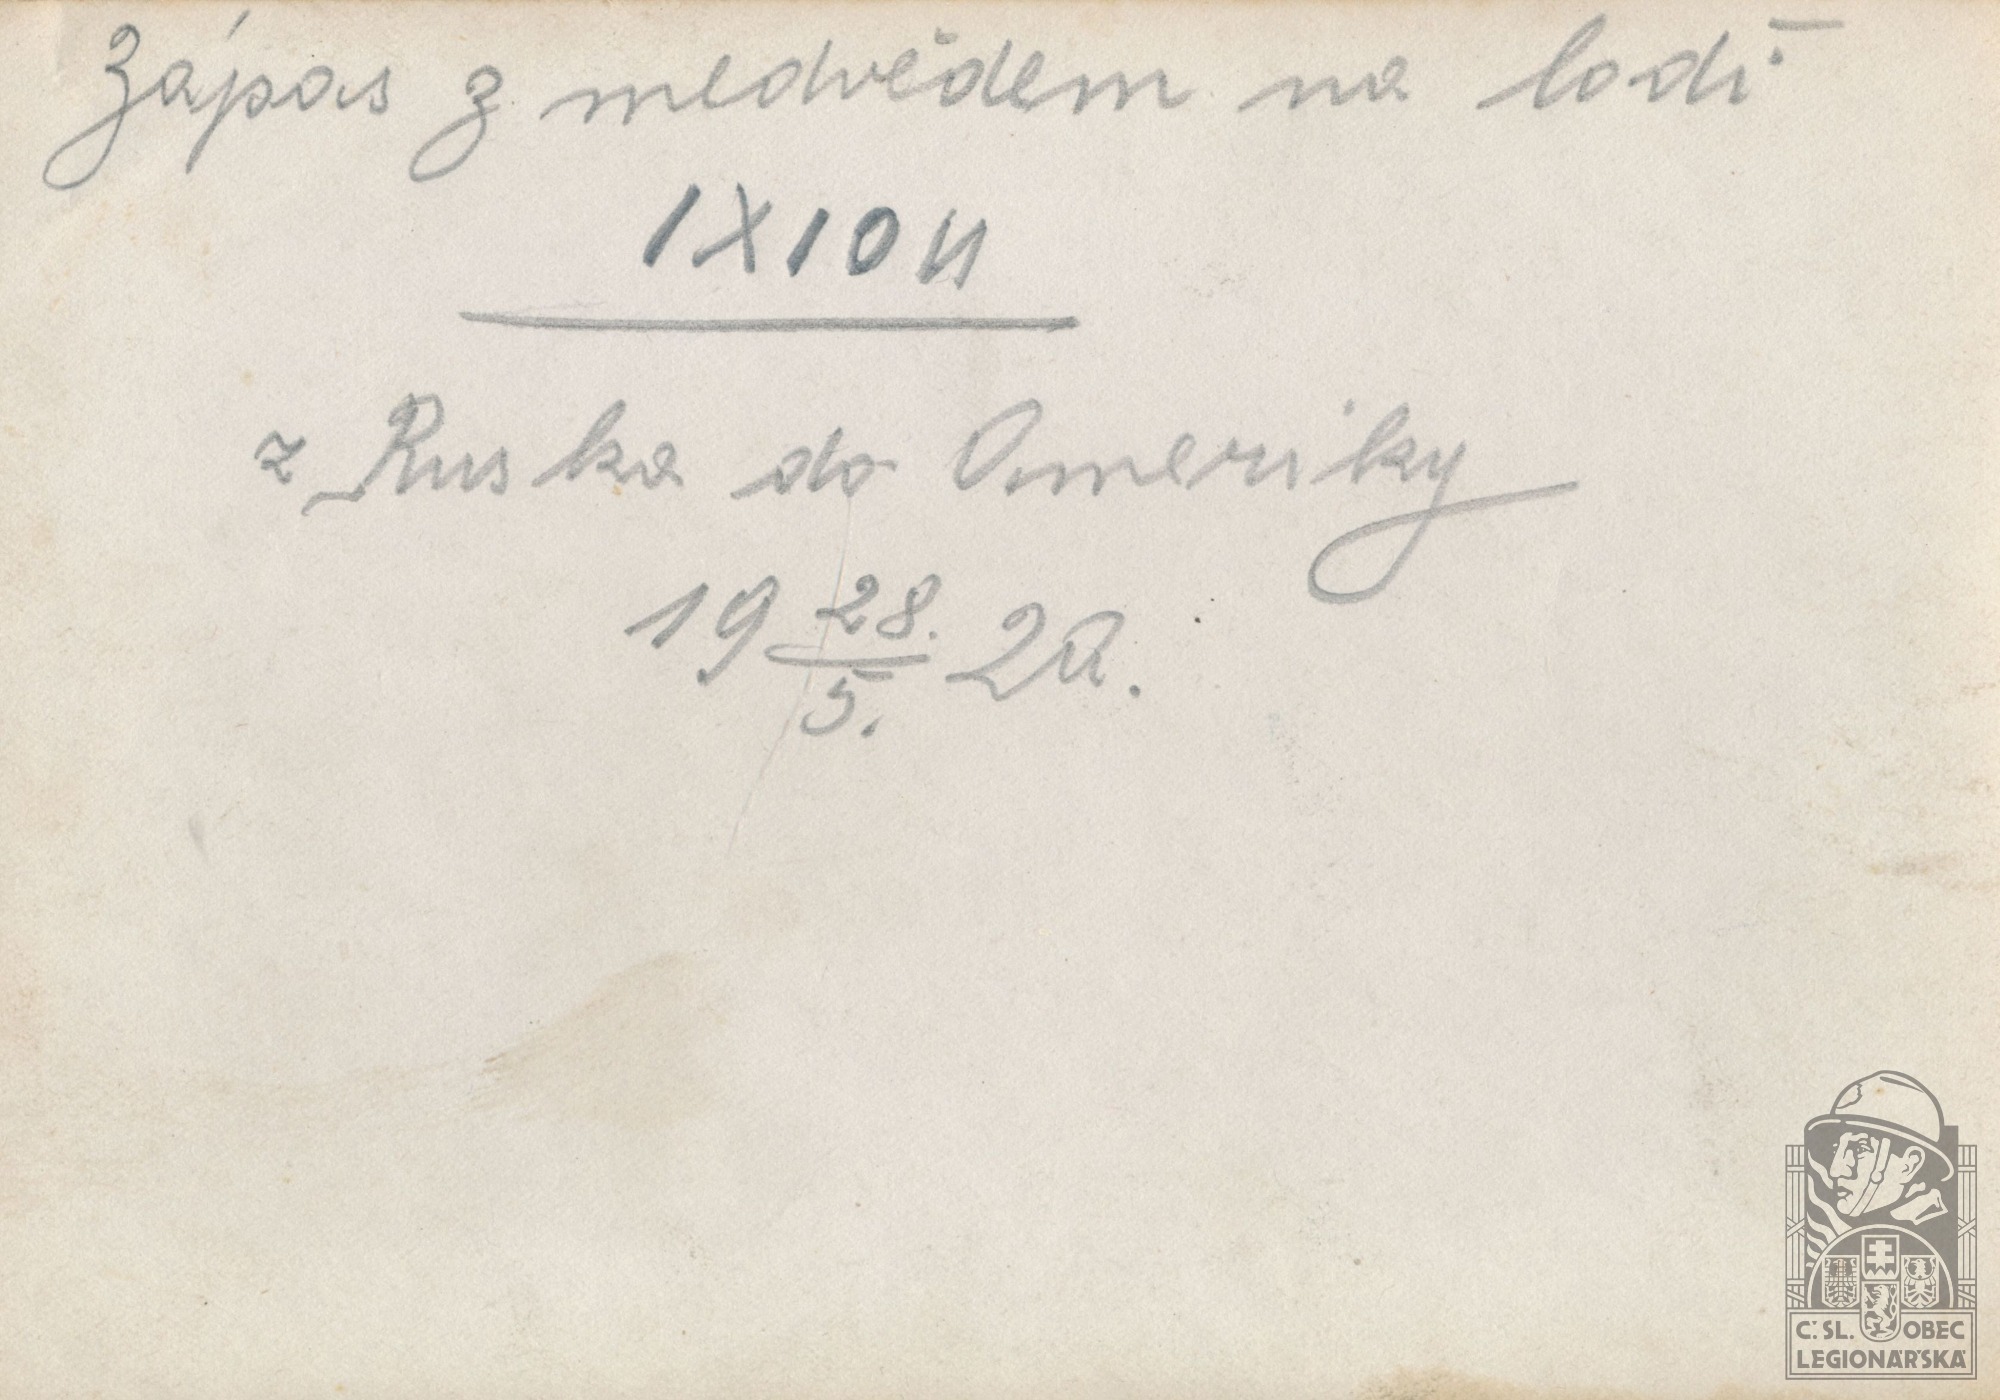 Zápas z medvědem na lodi
IXION
z Ruska do Ameriky
19 28./5. 20.
Č.SL. OBEC
LEGIONÁŘSKÁ